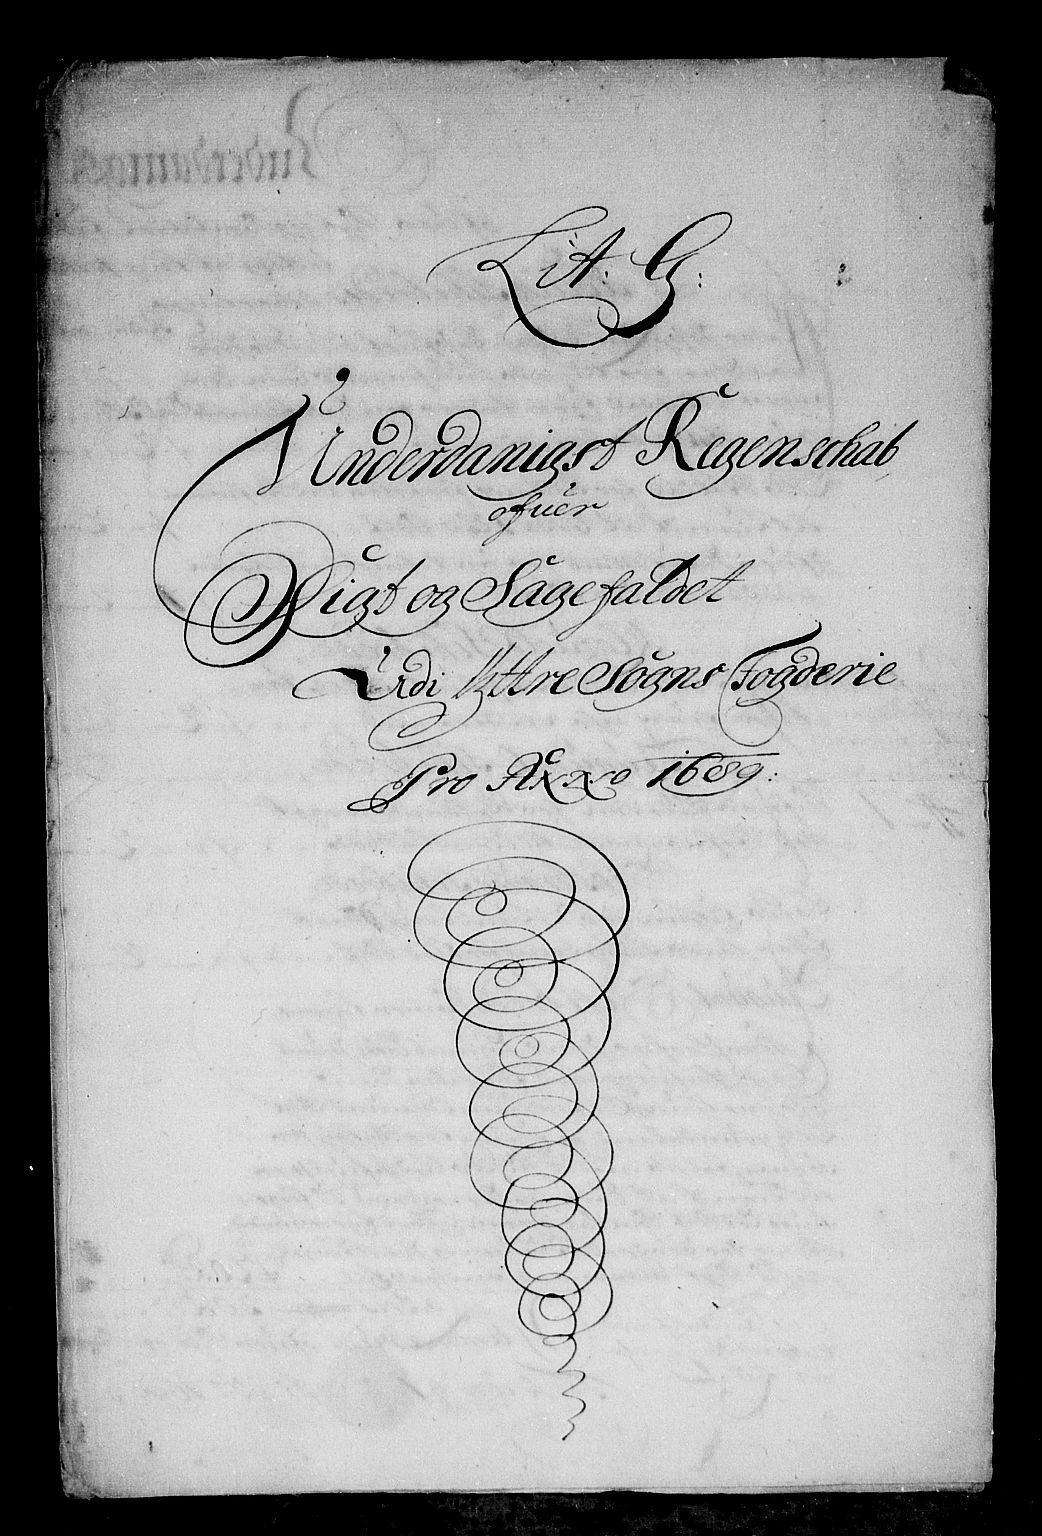 Lit. G:
Underdanigst Regenschab,
ofuer
Sigt og Sagefaldet
Udi Yttre Sogns Fogderie
Pro Anno 1689: